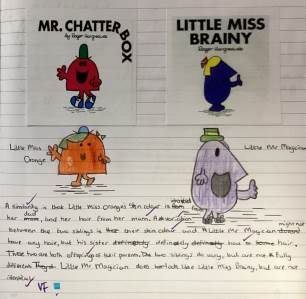 MR. CHATTERBOX
by Roger Hargreaves
LITTLE MISS BRAINY
Roger Hargreaves
Little Miss Orange
Little Mr Magician
A similarity is that Little Miss Oranges Skin colour is from
her dad and her hair from her mum. A variation
between the two siblings is their skin colour and Little Mr Magician might not
have any hair, but his sister definitely have some hair.
These two are both offspring of their parents. The two siblings do vary, but are not fully
different. Little Mr Magician does look like Little Miss Brainy, but are not
identical.
VF